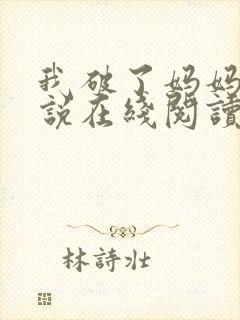 我破了妈妈
說在綫閱讀
林詩壯